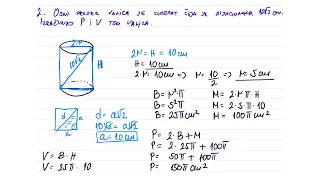 2. Osni presek valjka je kvadrat čija je dijagonala 10√2 cm.
Izračunati P i V tog valjka.
10√2
H
2r = H = 10cm
H = 10cm
2·r = 10cm => r = 10/2 => r = 5cm
B = r²·π
B = 5²π
B = 25π cm²
M = 2·r·π·H
M = 2·5·π·10
M = 100π cm²
d
a
a
d = a√2
10√2 = a√2
a = 10cm
P = 2·B + M
P = 2·25π + 100π
P = 50π + 100π
P = 150π cm²
V = B·H
V = 25π·10